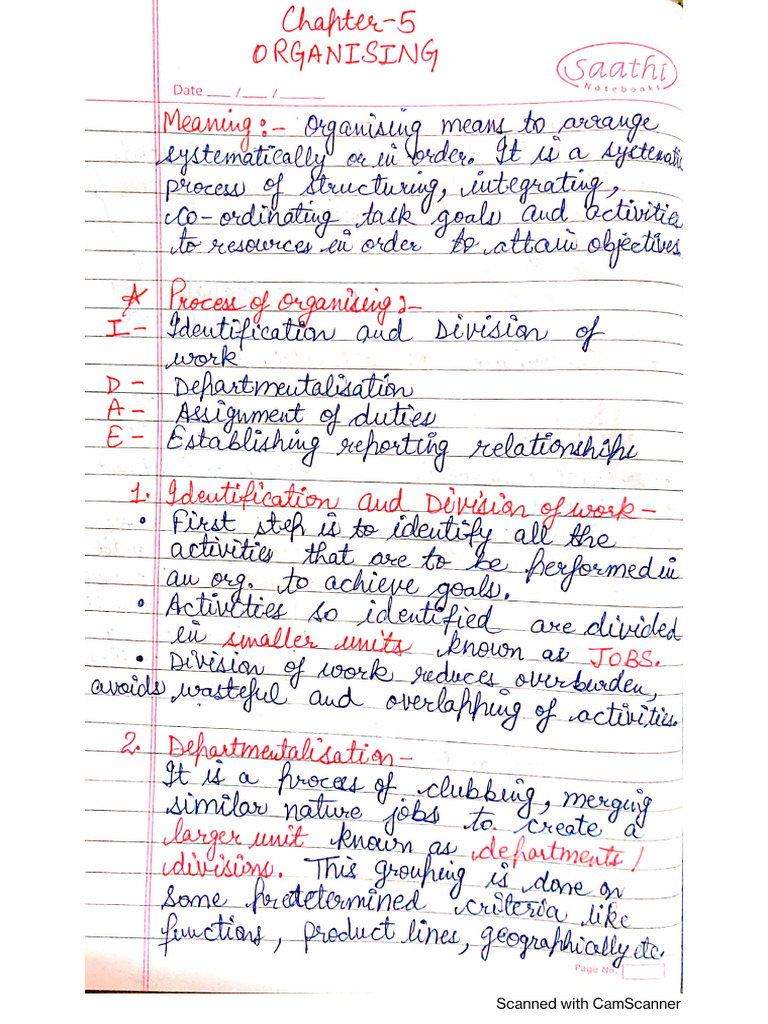 Chapter-5
ORGANISING
Saathi
Notebooks
Date ___ / ___ / ______
Meaning:- Organising means to arrange
systematically or in order. It is a systematic
process of structuring, integrating,
co-ordinating task goals and activities
to resources in order to attain objectives
☆ Process of Organising:-
I - Identification and Division of
work
D - Departmentalisation
A - Assignment of duties
E - Establishing reporting relationships
1. Identification and Division of work -
• First step is to identify all the
activities that are to be performed in
an org. to achieve goals.
• Activities so identified are divided
in smaller units known as JOBS.
• Division of work reduces overburden,
avoids wasteful and overlapping of activities.
2. Departmentalisation -
It is a process of clubbing, merging
similar nature jobs to create a
larger unit known as departments/
divisions. This grouping is done on
some predetermined criteria like
functions, product lines, geographically etc.
Page No.
Scanned with CamScanner